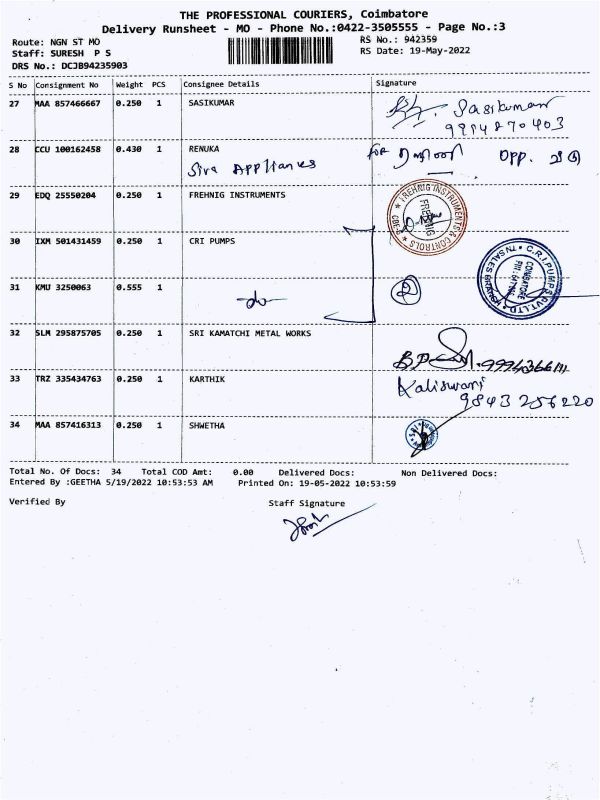 THE PROFESSIONAL COURIERS, Coimbatore
Delivery Runsheet - MO - Phone No.:0422-3505555 - Page No.:3
Route: NGN ST MO
Staff: SURESH P S
DRS No.: DCJB94235903
RS No.: 942359
RS Date: 19-May-2022
S No Consignment No Weight PCS Consignee Details Signature
27 MAA 857466667 0.250 1 SASIKUMAR Sasikumar
28 CCU 100162458 0.430 1 RENUKA for Opp.
Siva Appliances
29 EDQ 25550204 0.250 1 FREHNIG INSTRUMENTS
FREHNIG INSTRUMENTS & CONTROLS
FREHNIG
30 IXM 501431459 0.250 1 CRI PUMPS
31 KMU 3250063 0.555 1 -do- 2
32 SLM 295875705 0.250 1 SRI KAMATCHI METAL WORKS
33 TRZ 335434763 0.250 1 KARTHIK Kaliswari
9843256220
34 MAA 857416313 0.250 1 SHWETHA
Total No. Of Docs: 34 Total COD Amt: 0.00 Delivered Docs: Non Delivered Docs:
Entered By :GEETHA 5/19/2022 10:53:53 AM Printed On: 19-05-2022 10:53:59
Verified By Staff Signature